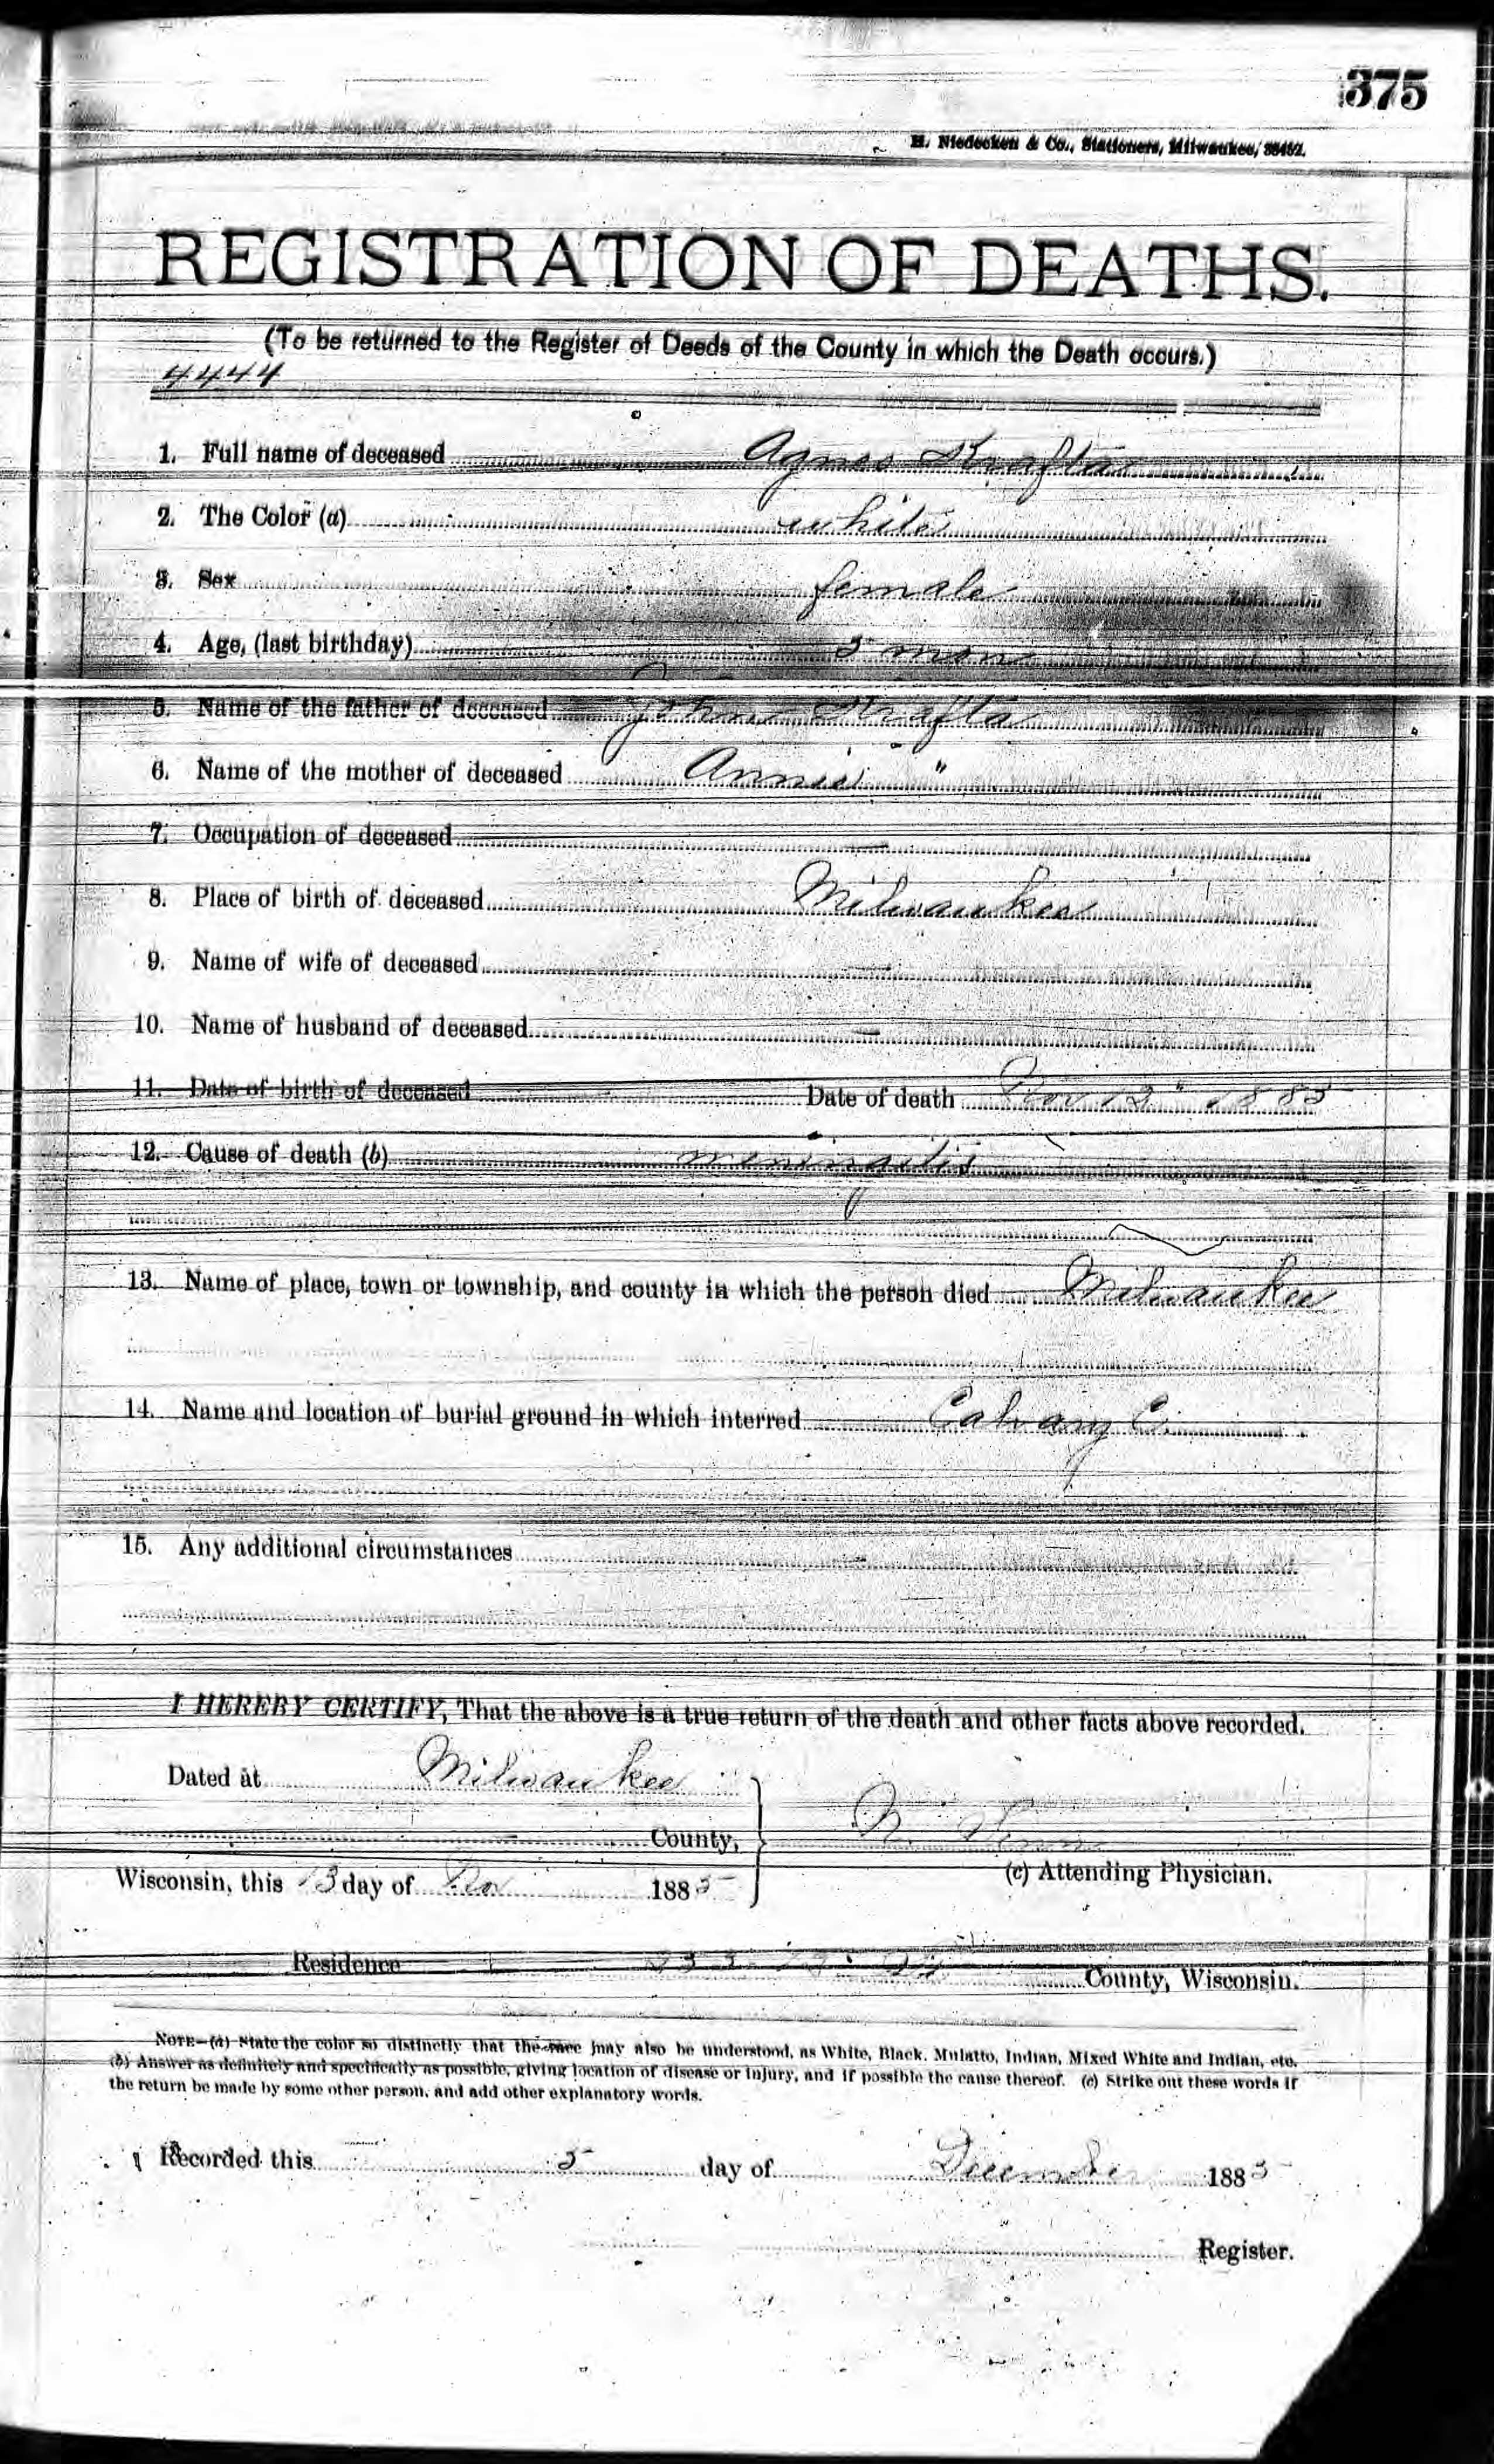 375
H. Niedecken & Co., Stationers, Milwaukee, 38482.
REGISTRATION OF DEATHS.
(To be returned to the Register of Deeds of the County in which the Death occurs.)
4444
1. Full name of deceased Agnes Krafta
2. The Color (a) white
3. Sex female
4. Age, (last birthday) 5 mon
5. Name of the father of deceased John Krafta
6. Name of the mother of deceased Annie "
7. Occupation of deceased —
8. Place of birth of deceased Milwaukee
9. Name of wife of deceased —
10. Name of husband of deceased —
11. Date of birth of deceased Date of death Nov 12" 1885
12. Cause of death (b) meningitis
13. Name of place, town or township, and county in which the person died Milwaukee
14. Name and location of burial ground in which interred Calvary C.
15. Any additional circumstances —
I HEREBY CERTIFY, That the above is a true return of the death and other facts above recorded.
Dated at Milwaukee
County,
(c) Attending Physician.
Wisconsin, this 13 day of Nov 1885
Residence County, Wisconsin.
NOTE—(a) State the color so distinctly that the race may also be understood, as White, Black, Mulatto, Indian, Mixed White and Indian, etc.
(b) Answer as definitely and specifically as possible, giving location of disease or injury, and if possible the cause thereof. (c) Strike out these words if
the return be made by some other person, and add other explanatory words.
Recorded this 5 day of December 1885
Register.